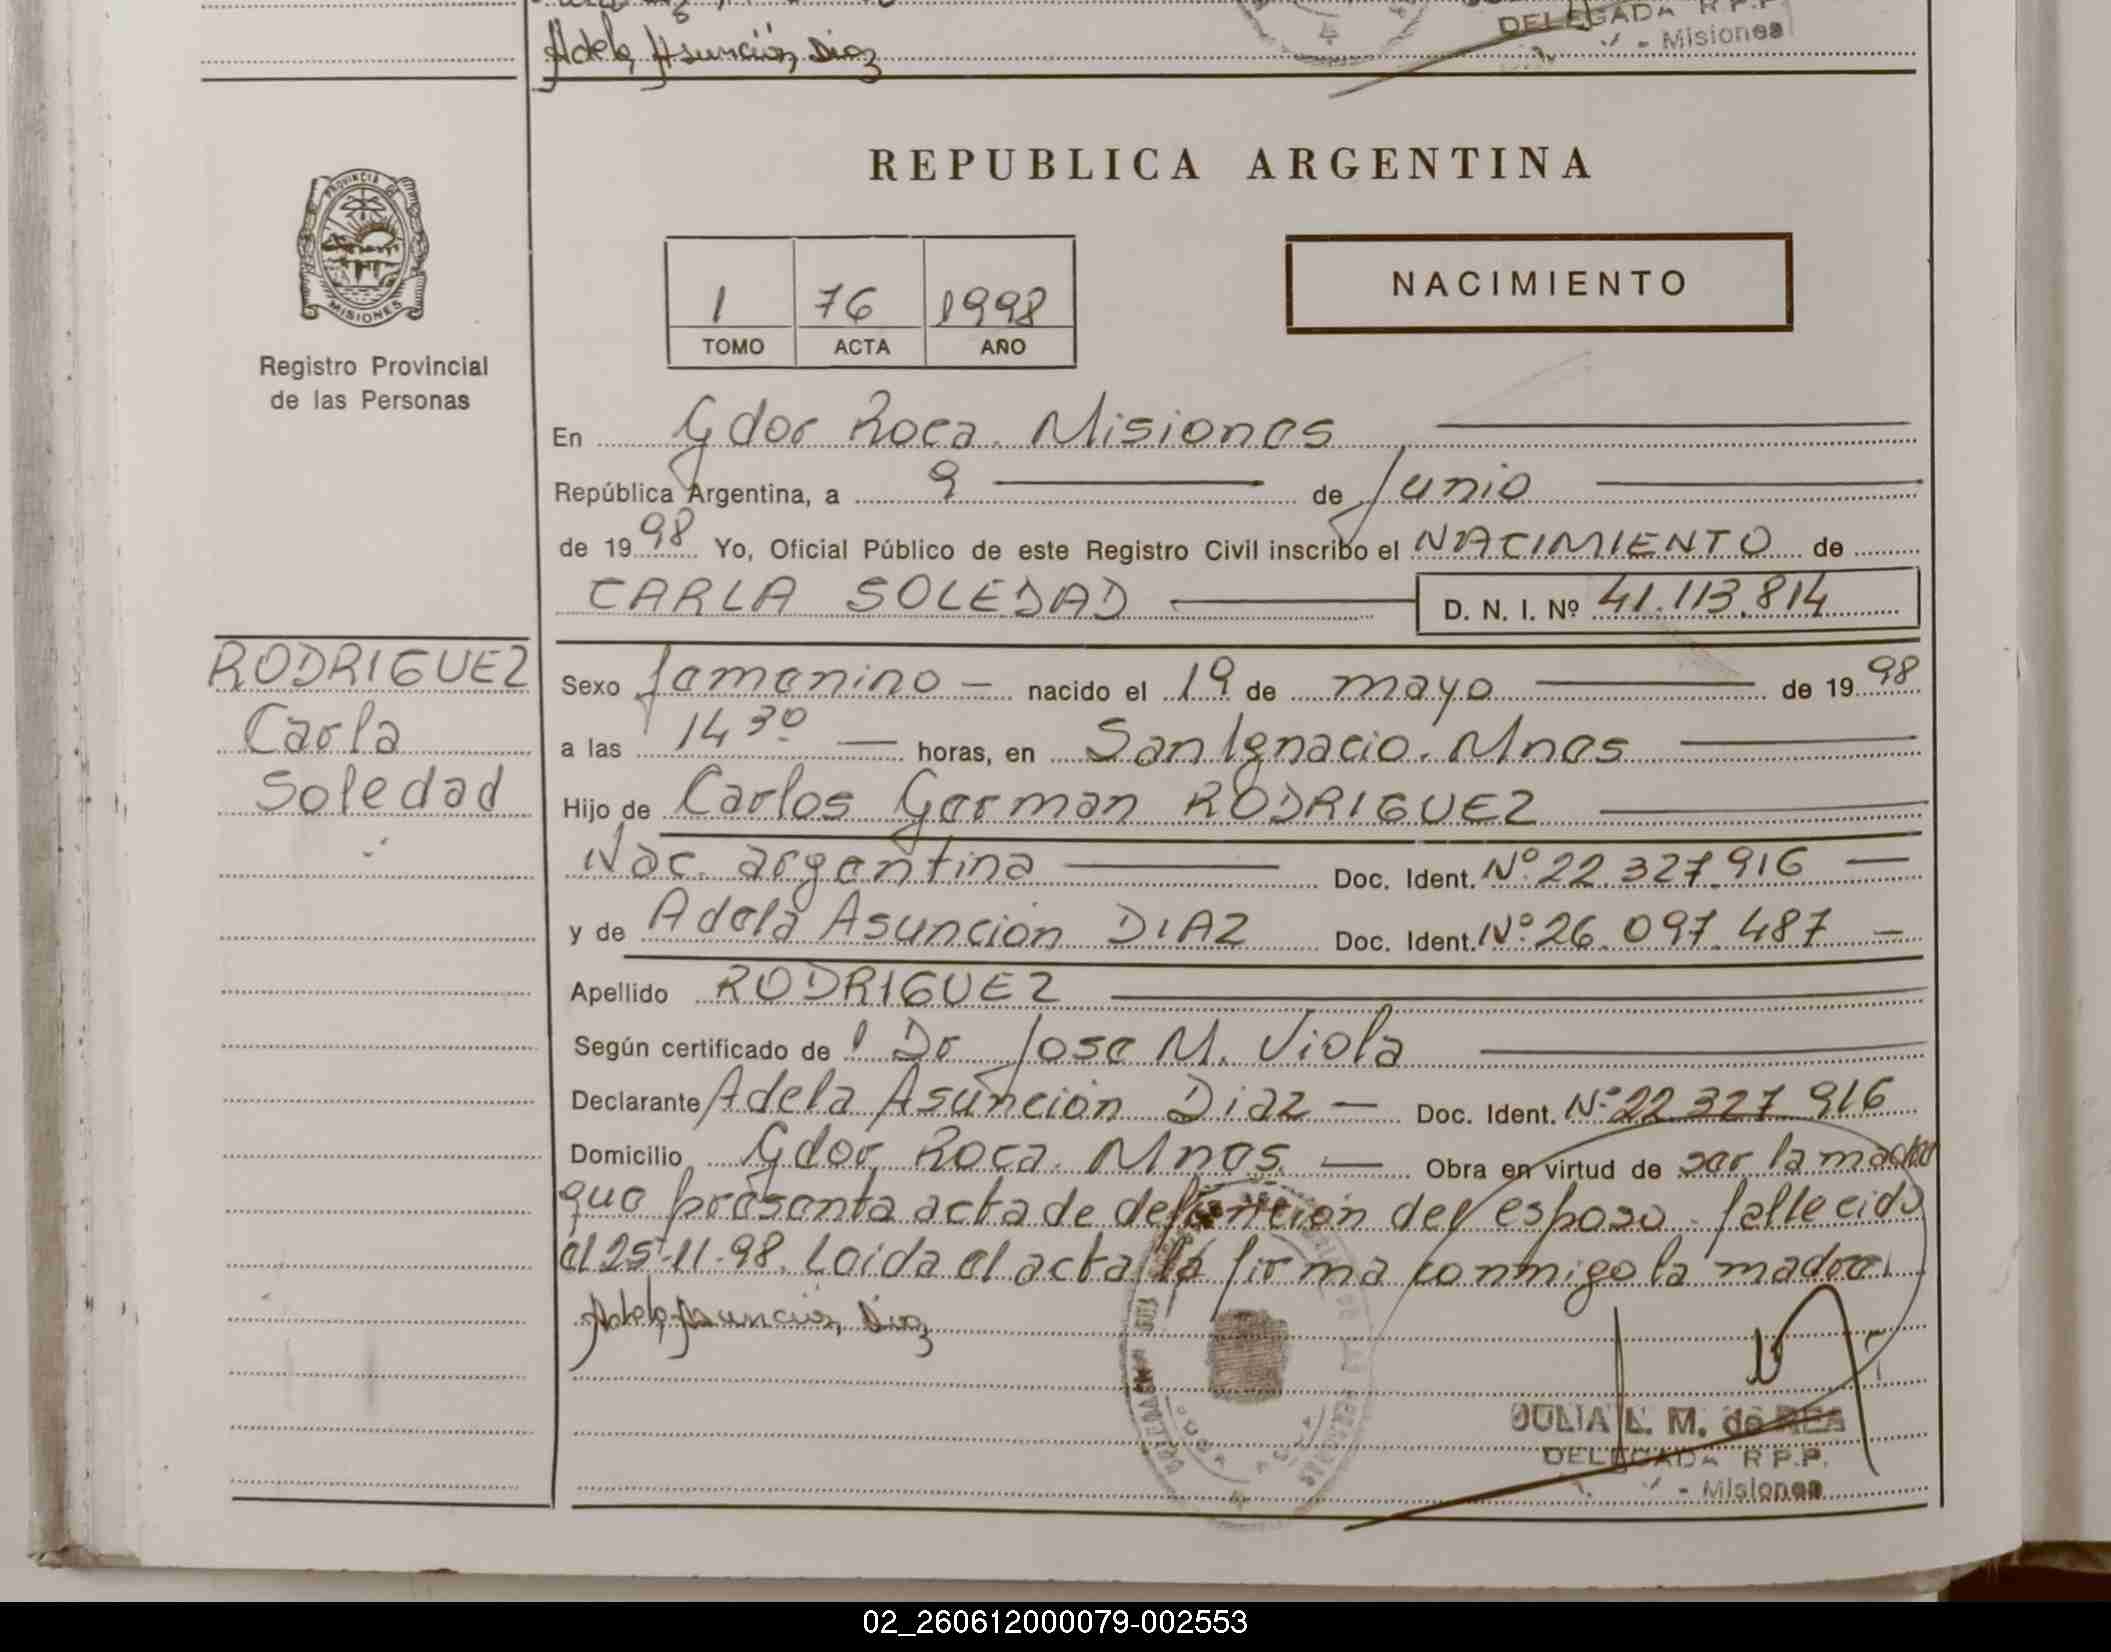 Adela Asunción Diaz
DELEGADA R.P.P.
- Misiones
PROVINCIA DE
MISIONES
Registro Provincial
de las Personas
REPUBLICA ARGENTINA
1 76 1998
TOMO ACTA AÑO
NACIMIENTO
En Gdor Roca. Misiones
República Argentina, a 9 de Junio
de 1998 Yo, Oficial Público de este Registro Civil inscribo el NACIMIENTO de
CARLA SOLEDAD D. N. I. Nº 41.113.814
RODRIGUEZ
Carla
Soledad
Sexo femenino - nacido el 19 de mayo de 1998
a las 14 30 horas, en San Ignacio. Mnes
Hijo de Carlos German RODRIGUEZ
Nac. argentina Doc. Ident. Nº 22.327.916
y de Adela Asunción DIAZ Doc. Ident. Nº 26.097.487 -
Apellido RODRIGUEZ
Según certificado de l Dr Jose M. Viola
Declarante Adela Asunción Diaz - Doc. Ident. Nº 22 327 916
Domicilio Gdor Roca. Mnes. - Obra en virtud de ser la madre
que presenta acta de defunción del esposo. fallecido
el 25-11-98. Leida el acta la firma conmigo la madre.
Adela Asunción Diaz
JULIA L. M. de REA
DELEGADA R.P.P.
- Misiones
02_260612000079-002553